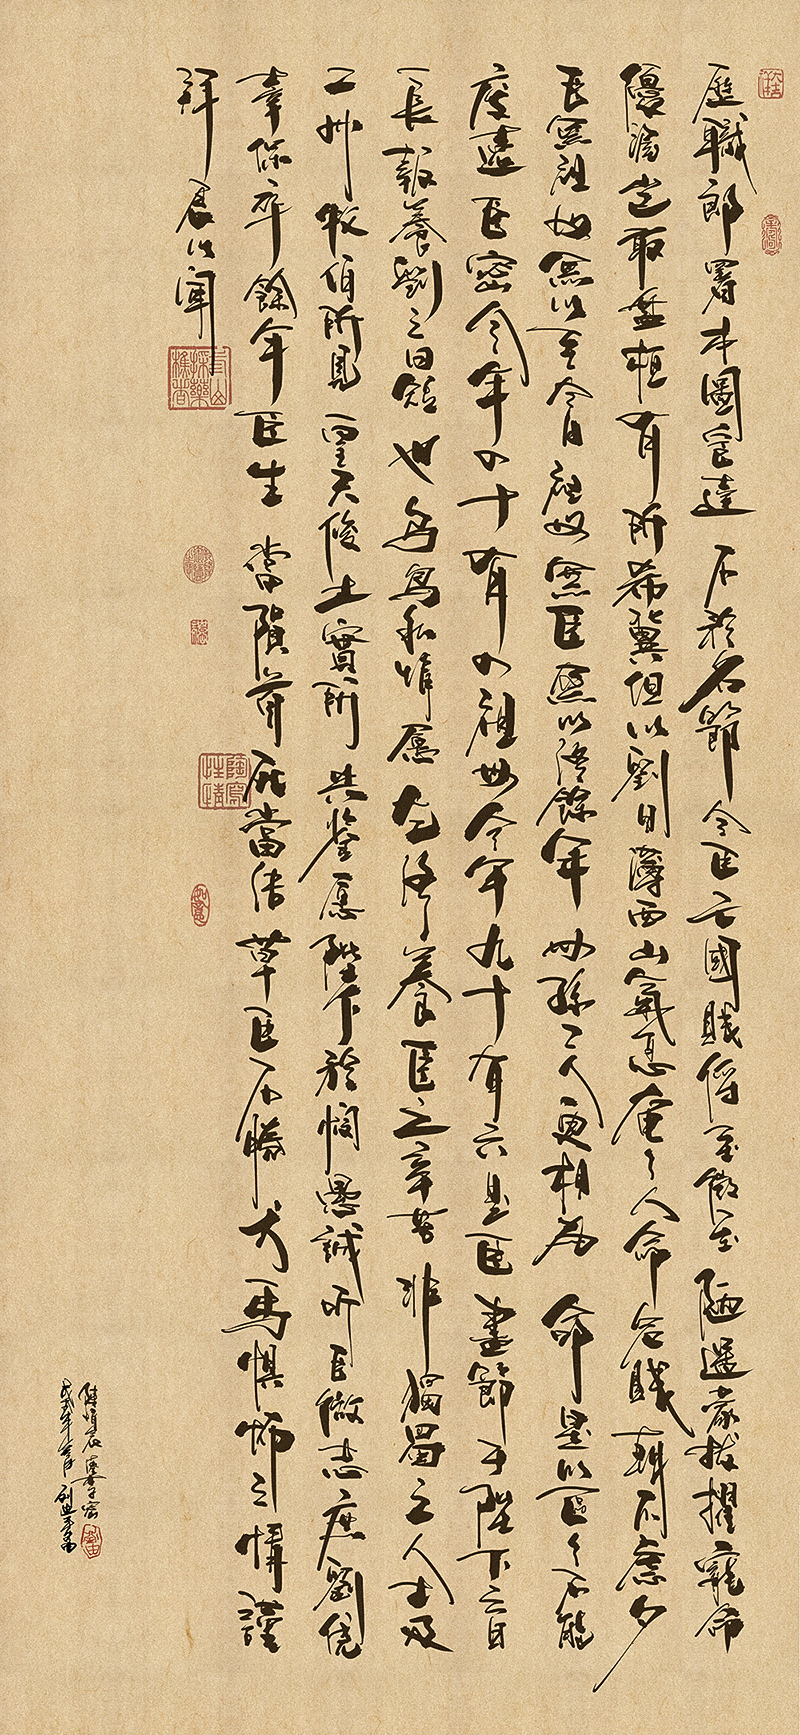 歷職郎署本圖宦達不矜名節今臣亡國賤俘至微至陋過蒙拔擢寵命
優渥豈敢盤桓有所希冀但以劉日薄西山氣息奄々人命危賤朝不慮夕
臣無祖母無以至今日祖母無臣無以終餘年母孫二人更相為命是以區々不能
廢遠臣密今年四十有四祖母今年九十有六是臣盡節于陛下之日
長報養劉之日短也烏鳥私情願乞終養臣之辛苦非獨蜀之人士及
二州牧伯所見皇天後土實所共鑒願陛下矜憫愚誠聽臣微志庶劉僥
幸保卒餘年臣生當隕首死當結草臣不勝犬馬惧怖之情謹
拜表以聞
陳情表李密
戊戌年
陶寫性情
如意